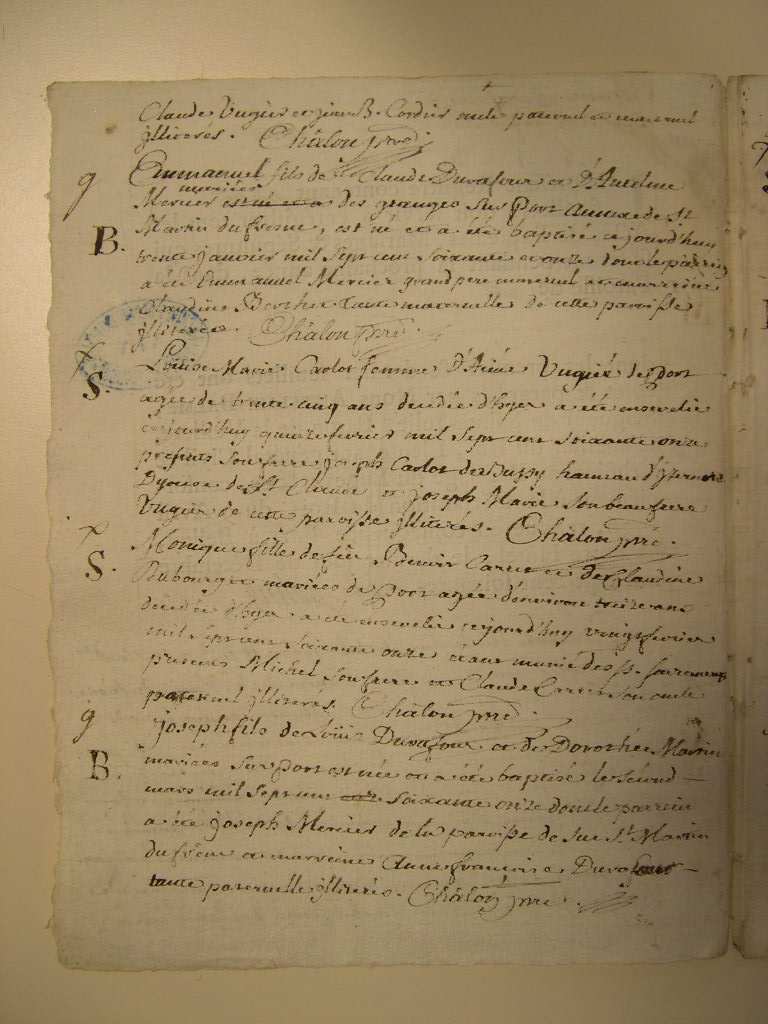 Claude Vugier et jean B. Cordier oncle paternel et maternel
jlliteres. Châlon prre
9 Emmanuel fils de Claude Duvafour et d'
Mercier mariées est né et a des granges sur Port annexe de St
B. Martin du fresne, est né et a été baptisé ce jourd'huy
trente janvier mil sept cent soixante et onze dont le parrein
a été Emmanuel Mercier grand pere maternel et marreine
Claudine Berthet tante maternelle de cette paroisse
jlliterés. Châlon prre
S. Louise Marie Carlot femme d'Aimé Vugier de Port
agée de trente cinq ans decedée d'hyer a été ensevelie
cejourd'huy quinze fevrier mil sept cent soixante onze
presents son frere joseph Carlot de Bussy hameau d'jzernore
Dyocese de St Claude et joseph Marie son beau frere
Vugier de cette paroisse jlliterés. Châlon prre
Monique fille de feu Benoit Carrier et de Claudine
S. Dubourget mariées de Port agée d'environ treize ans
decedée d'hyer a été ensevelie cejourd'huy vingt fevrier
mil sept cent soixante onze étant munie des st sacrements
presents Michel son frere et Claude Carrier son oncle
paternel jlliterés. Châlon prre
9 joseph fils de Duvafour et de Dorothée Martin
B. mariées sur Port est née et a été baptisé le second
mars mil sept cent soixante onze dont le parrein
a été joseph Mercier de la paroisse de St Martin
du frêne et marreine Anne françoise
tante paternelle jlliterés. Châlon prre